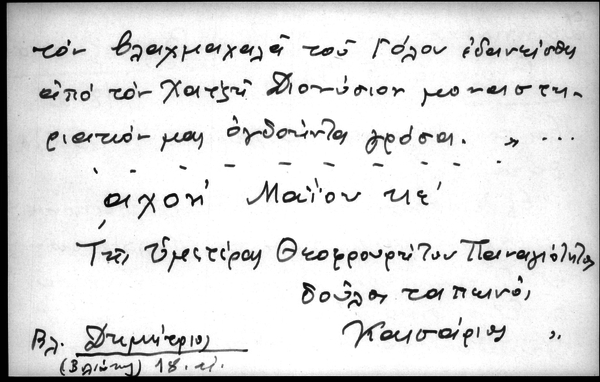 τὸν Βλαχμαχαλᾶ τοῦ Γόλου ἐδανείσθη
ἀπό τὸν Χατζῆ Διονύσιον μοναστη-
ριακόν μας ὀγδοήντα γρόσα. " ...
αχοηʹ Μαΐου κεʹ
Τῆς Ὑμετέρας Θεοφρουρήτου Παναγιότητος
δοῦλος ταπεινός
Καισάριος "
Βλ. Δημήτριος
18.